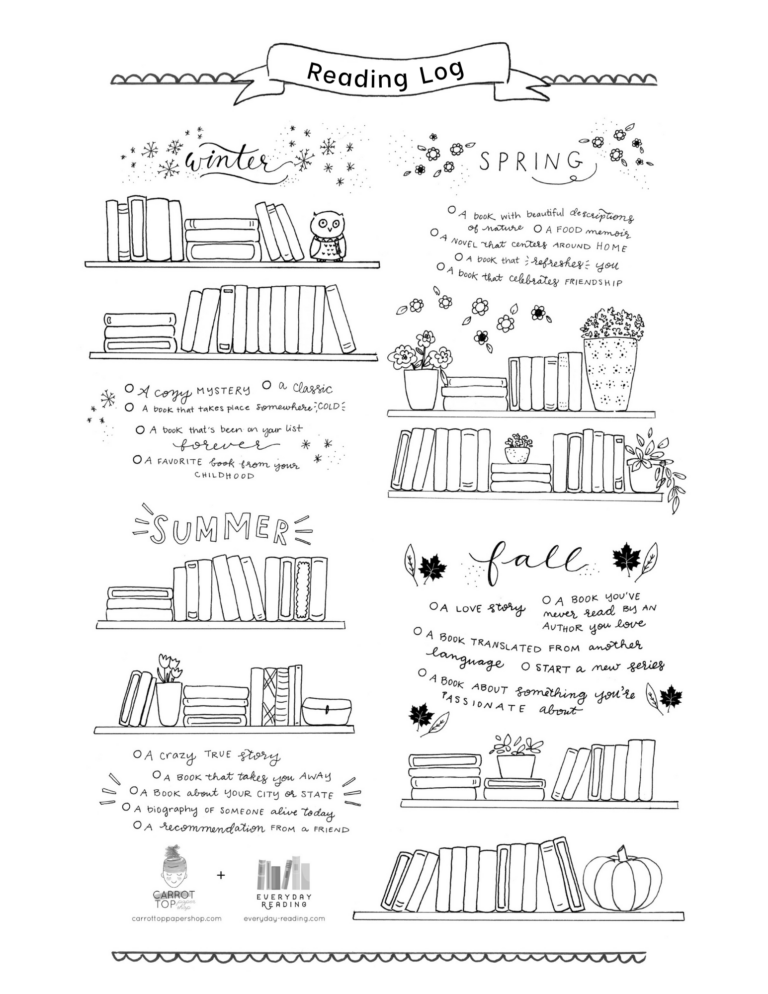 Reading Log
winter
○ A cozy MYSTERY ○ a classic
○ A book that takes place somewhere COLD
○ A book that's been on your list
forever
○ A FAVORITE book from your
CHILDHOOD
SPRING
○ A book with beautiful descriptions
of nature ○ A FOOD memoir
○ A NOVEL that centers AROUND HOME
○ A book that refreshes you
○ A book that celebrates FRIENDSHIP
SUMMER
○ A crazy TRUE story
○ A BOOK that takes you AWAY
○ A BOOK about YOUR CITY or STATE
○ A biography OF SOMEONE alive today
○ A recommendation FROM a FRIEND
fall
○ A LOVE story
○ A BOOK YOU'VE
never read BY AN
AUTHOR you love
○ A BOOK TRANSLATED FROM another
language ○ START a new series
○ A BOOK ABOUT something you're
PASSIONATE about
CARROT
TOP
carrottoppapershop.com
+
EVERYDAY
READING
everyday-reading.com